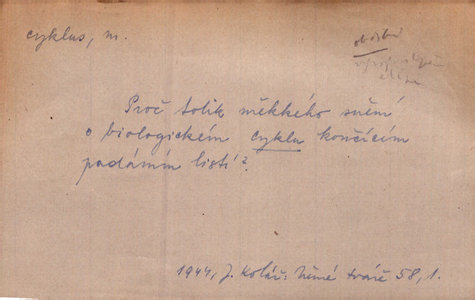 cyklus, m.
období
Proč tolik měkkého snění
o biologickém cyklu končícím
padáním listí?
1944, J. Kolář: Němé tváře 58, 1.